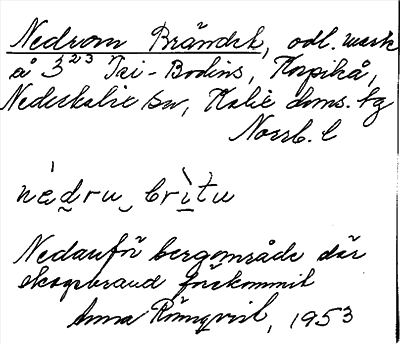 Nedrom Brändet, odl. mark
å 3²³ Tai-Bodins, Korpikå,
Nederkalix sn, Kalix doms. tg
Norrb. l
nèdru brìtu
Nedanför bergområde där
skogsbrand förekommit
Anna Rönnqvist, 1953